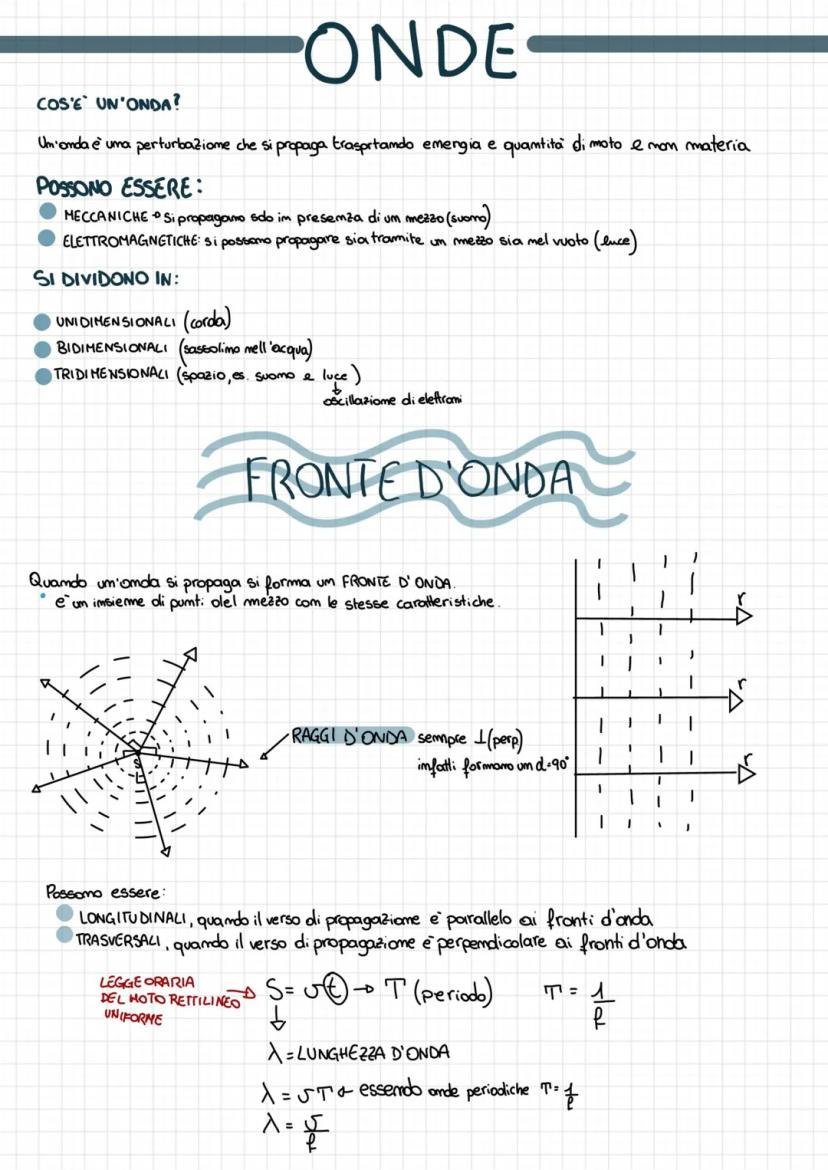 ONDE
COS'E` UN'ONDA?
Un'onda è una perturbazione che si propaga trasprtando energia e quantità di moto e non materia
POSSONO ESSERE:
MECCANICHE → si propagano solo in presenza di un mezzo (suono)
ELETTROMAGNETICHE: si possono propagare sia tramite un mezzo sia nel vuoto (luce)
SI DIVIDONO IN:
UNIDIMENSIONALI (corda)
BIDIMENSIONALI (sassolino nell'acqua)
TRIDIMENSIONALI (spazio, es. suono e luce)
↓
oscillazione di elettroni
FRONTE D'ONDA
Quando un'onda si propaga si forma un FRONTE D'ONDA.
è un insieme di punti del mezzo con le stesse caratteristiche.
r
r
r
S
RAGGI D'ONDA sempre ⊥ (perp)
infatti formano un α=90°
Possono essere:
LONGITUDINALI, quando il verso di propagazione è parallelo ai fronti d'onda
TRASVERSALI, quando il verso di propagazione è perpendicolare ai fronti d'onda
LEGGE ORARIA
DEL MOTO RETTILINEO →
UNIFORME
S = vt → T (periodo) T = 1/f
↓
λ = LUNGHEZZA D'ONDA
λ = vT ← essendo onde periodiche T = 1/f
λ = v/f